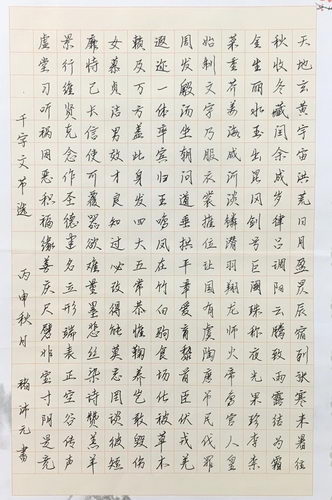 天地玄黄宇宙洪荒日月盈昃辰宿列张寒来暑往
秋收冬藏闰余成岁律吕调阳云腾致雨露结为霜
金生丽水玉出昆冈剑号巨阙珠称夜光果珍李柰
菜重芥姜海咸河淡鳞潜羽翔龙师火帝鸟官人皇
始制文字乃服衣裳推位让国有虞陶唐吊民伐罪
周发殷汤坐朝问道垂拱平章爱育黎首臣伏戎羌
遐迩一体率宾归王鸣凤在竹白驹食场化被草木
赖及万方盖此身发四大五常恭惟鞠养岂敢毁伤
女慕贞洁男效才良知过必改得能莫忘罔谈彼短
靡恃己长信使可覆器欲难量墨悲丝染诗赞羔羊
景行维贤克念作圣德建名立形端表正空谷传声
虚堂习听祸因恶积福缘善庆尺璧非宝寸阴是竞
千字文节选 丙申秋月 元书